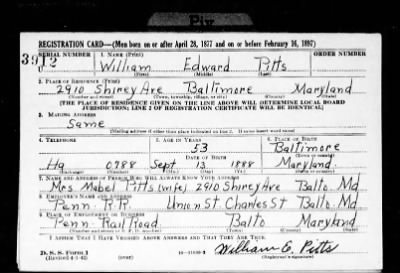 REGISTRATION CARD—(Men born on or after April 28, 1877 and on or before February 16, 1897)
SERIAL NUMBER 1. NAME (Print) ORDER NUMBER
3912 William Edward Pitts
(First) (Middle) (Last)
2. PLACE OF RESIDENCE (Print)
2910 Shirey Ave Baltimore Maryland
(Number and street) (Town, township, village, or city) (County) (State)
[THE PLACE OF RESIDENCE GIVEN ON THE LINE ABOVE WILL DETERMINE LOCAL BOARD
JURISDICTION; LINE 2 OF REGISTRATION CERTIFICATE WILL BE IDENTICAL]
3. MAILING ADDRESS
Same
[Mailing address if other than place indicated on line 2. If same insert word same]
4. TELEPHONE 5. AGE IN YEARS 6. PLACE OF BIRTH
53 Baltimore
DATE OF BIRTH (Town or county)
Ha 0788 Sept 13 1888 Maryland
(Exchange) (Number) (Mo.) (Day) (Yr.) (State or country)
7. NAME AND ADDRESS OF PERSON WHO WILL ALWAYS KNOW YOUR ADDRESS
Mrs Mabel Pitts (wife) 2910 Shirey Ave Balto. Md
8. EMPLOYER'S NAME AND ADDRESS
Penn. R.R. Union St. Charles St Balto. Md
9. PLACE OF EMPLOYMENT OR BUSINESS
Penn Rail Road Balto Maryland
(Number and street or R. F. D. number) (Town) (County) (State)
I AFFIRM THAT I HAVE VERIFIED ABOVE ANSWERS AND THAT THEY ARE TRUE.
D. S. S. Form 1 William E. Pitts
(Registrant's signature)